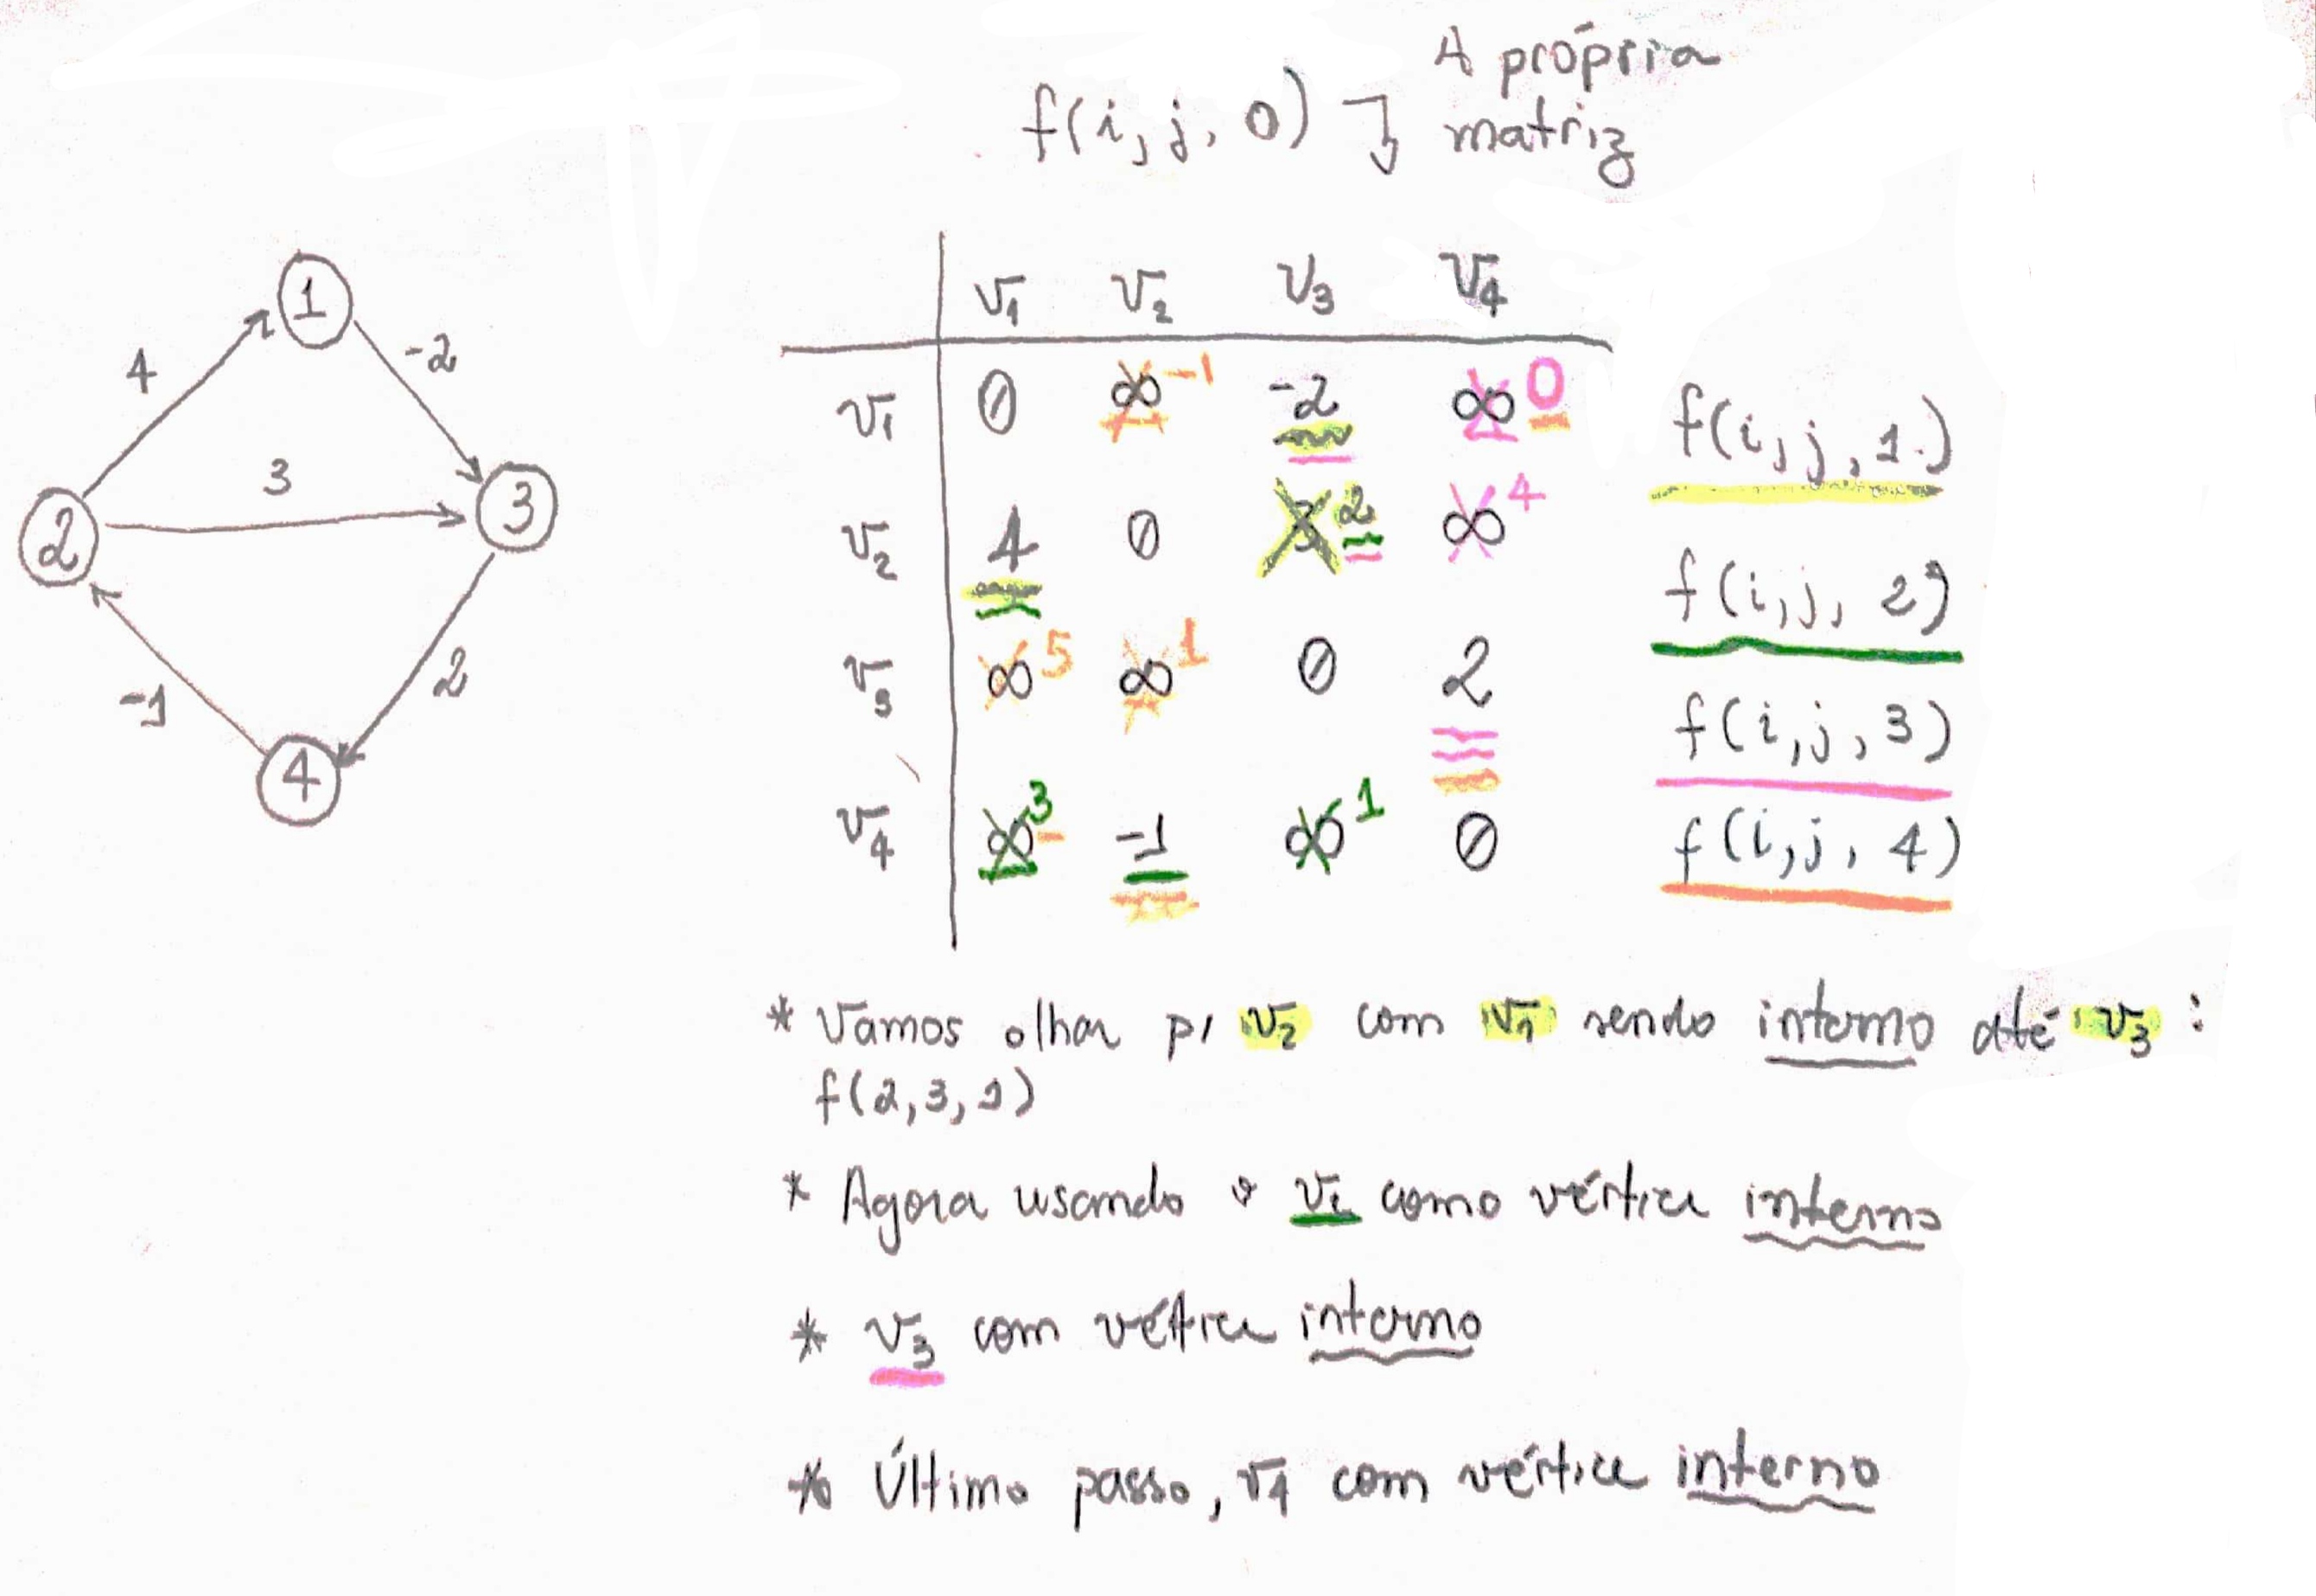 f(i, j, 0) → A própria
matriz
1
4
-2
3
2
3
-1
2
4
v1 v2 v3 v4
v1 0 ∞ -1 -2 ∞ 0
v2 4 0 3 2 ∞ 4
v3 ∞ 5 ∞ 1 0 2
v4 ∞ 3 -1 ∞ 1 0
f(i, j, 1)
f(i, j, 2)
f(i, j, 3)
f(i, j, 4)
* Vamos olhar p/ v2 com v1 sendo interno até v3 :
f(2, 3, 1)
* Agora usando o v2 como vértice interno
* v3 com vétice interno
* Último passo, v4 com vértice interno